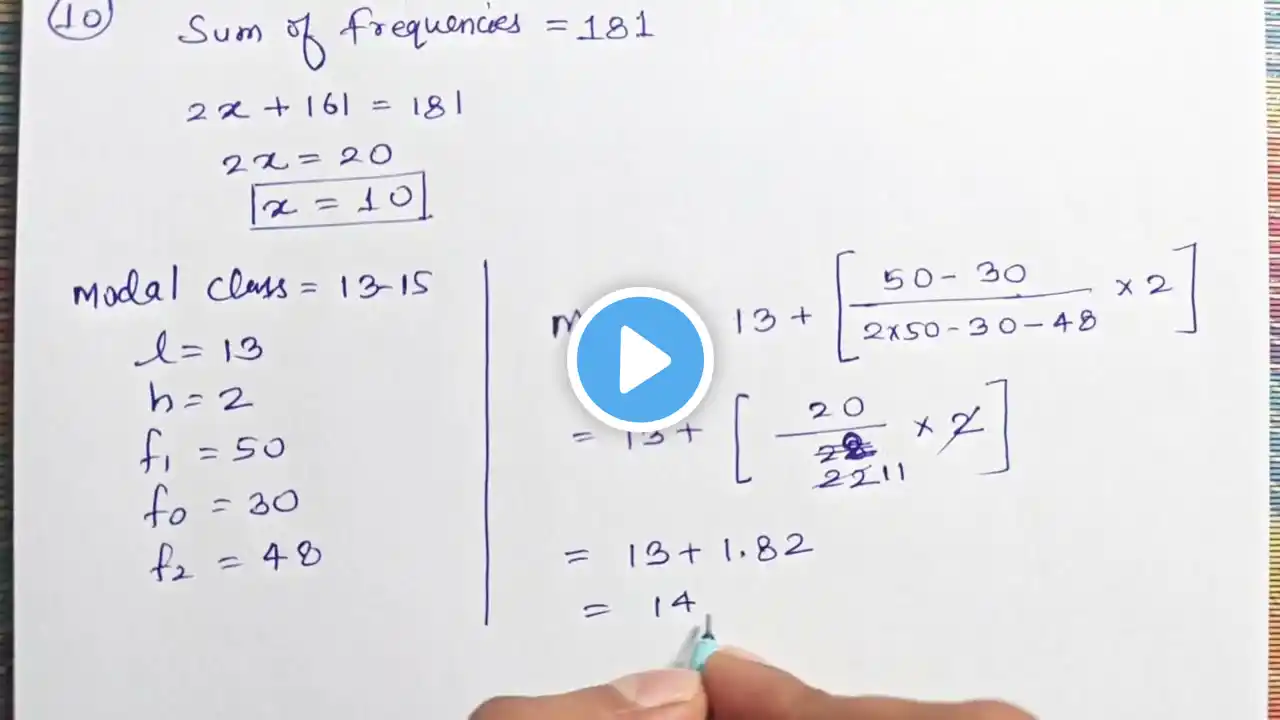 10
Sum of frequencies = 181
2x + 161 = 181
2x = 20
x = 10
modal class = 13-15
l = 13
h = 2
f₁ = 50
f₀ = 30
f₂ = 48
13 + [ 50 - 30 / 2×50 - 30 - 48 × 2 ]
= 13 + [ 20 / 22 11 × 2 ]
= 13 + 1.82
= 14